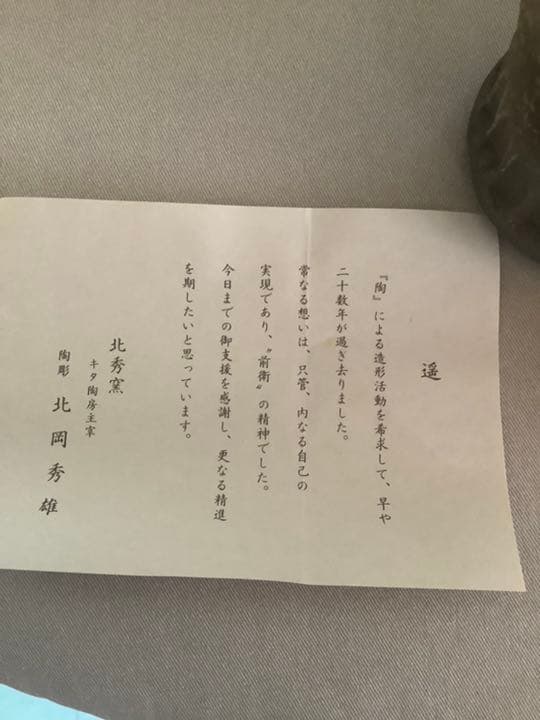 遥
『陶』による造形活動を希求して、早や
二十数年が過ぎ去りました。
常なる想いは、只管、内なる自己の
実現であり、〝前衛〟の精神でした。
今日までの御支援を感謝し、更なる精進
を期したいと思っています。
北秀窯
キタ陶房主宰
陶彫 北岡秀雄